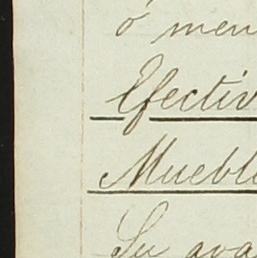 ó men
Efectiv
Mueble
Su ava